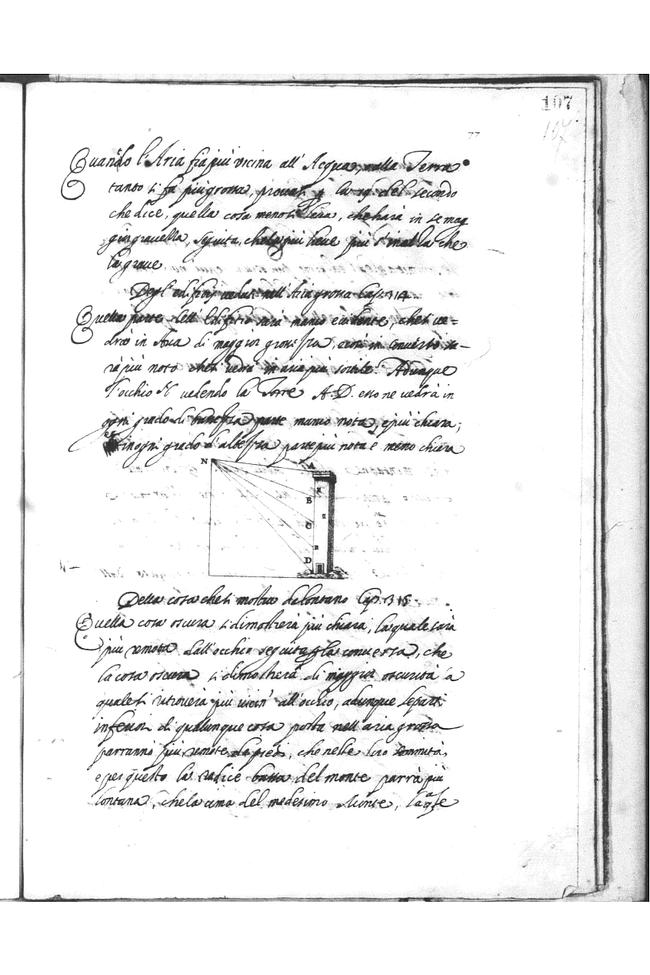 107
107
77
Quando l'Aria fia più vicina all'Acqua, o alla Terra
tanto si fa più grossa, provasi p la 19. del secondo
che dice, quella cosa meno si leva, che harà in se mag
gior gravezza, seguita, che la più lieve più s'inalza che
la grave
Degl'edifizij veduti nell'Aria grossa Cap. 314
Quella parte dell'Edifizio sarà manco evidente, che si ve=
drà in Aria di maggior grossezza, così in converso sa=
rà più noto che si vedrà in aria più sottile. Adunque
l'occhio N. vedendo la Torre A.D. esso ne vedrà in
ogni grado di bassezza parte manco nota, e più chiara;
et in ogni grado d'altezza parte più nota e meno chiara
N A
B
C
E
D
Della cosa che si mostra da lontano Cap. 315
Quella cosa oscura si dimostrerà più chiara, la quale sarà
più remota dall'occhio seguita p la conversa, che
la cosa oscura si dimostrerà di maggior oscurità la
quale si ritroverà più vicin' all'occhio, adunque le parti
inferiori di qualunque cosa posta nell'aria grossa
parranno più remote da piedi, che nelle loro sommità,
e per questo la radice bassa del monte parrà più
lontana, che la cima del medesimo Monte, la qle